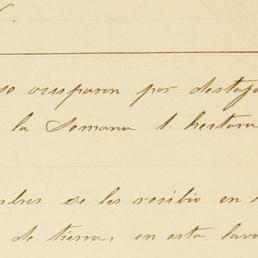 se ocuparon por destajo
la semana 1. hectara
mbres se les recibio en
de tierra, en esta lavo